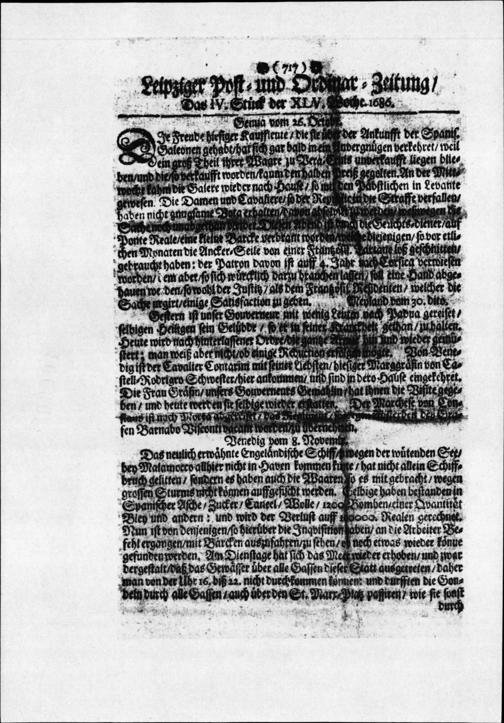 (717)
Leipziger Post- und Ordinar-Zeitung/
Das IV. Stück der XLV. Woche. 1686.
Genua vom 26. Octobr.
DJe Freude hiesiger Kauffleute/ die sie über der Ankunfft der Spanis.
Galeonen gehabt/ hat sich gar bald in ein Unvergnügen verkehret/ weil
ein groß Theil ihrer Waare zu Vera Cruis unverkaufft liegen blie-
ben/ und die/ so verkaufft worden/ kaum den halben Preiß gegolten. An der Mitt-
wochs kahm die Galere wieder nach Hause/ so mit den Päbstlichen in Levante
gewesen. Die Damen und Cavaliere/ so der Republic in die Straffe verfallen/
haben nicht gnugsame Vota erhalten/ davon absolvirt zu werden/ weßwegen die
Sache noch unabgethan
Ponte Reale/ eine kleine Barcke verbrant worden/ diejenigen/ so vor etli-
chen Monaten die Ancker-Seile von einer Frantzösis. Tartane loß geschnitten/
gebraucht haben: der Patron davon ist auff 4. Jahr nach Corsica verwiesen
worden/ jenem aber/ so sich würcklich darzu brauchen lassen/ soll eine Hand abge-
hauen werden/ sowohl der Justitz/ als dem Frantzösis. Residenten/ welcher die
Sache urgirt/ einige Satisfaction zu geben. Meyland vom 30. dito.
Gestern ist unser Gouverneur mit wenig Leuten nach Padua gereiset/
selbigen Heiligen sein Gelübde/ so er in seiner Kranckheit gethan/ zu halten.
Heute wird nach hinterlassener Ordre/ die gantze Armee hin und wieder gemu-
stert; man weiß aber nicht/ ob einige Reduction erfolgen möge. Von Vene-
dig ist der Cavalier Contarini mit seiner Liebsten/ hiesiger Marggräfin von Ca-
stell-Rodrigro Schwester/ hier ankommen/ und sind in dero Hause eingekehret.
Die Frau Gräfin/ unsers Gouverneurs Gemahlin/ hat ihnen die Visite gege-
ben/ und heute werden sie selbige wieder erstatten. Der Marchese von Con-
sen Barnabo Visconti vacant worden/ zu übernehmen.
Venedig vom 8. Novembr.
Das neulich erwähnte Engeländische Schiff/ so wegen der wütenden See/
bey Malamocco allhier nicht in Haven kommen kunte/ hat nicht allein Schiff-
bruch gelitten/ sondern es haben auch die Waaren/ so es mit gebracht/ wegen
grossen Sturms nicht können auffgefischt werden. Selbige haben bestanden in
Spanischer Asche/ Zucker/ Caneel/ Wolle/ 1200 Bomben/ einer Quantität
Bley und andern: und wird der Verlust auff Realen gerechnet.
Nun ist von denjenigen/ so hierüber die Inquisition haben/ an die Arbeiter Be-
fehl ergangen/ mit Barcken auszufahren/ zu sehen/ ob noch etwas wieder könne
gefunden werden. Am Dienstage hat sich das Meer wieder erhoben/ und zwar
dergestalt/ daß das Gewässer über alle Gassen dieser Statt ausgetreten/ daher
man von der Uhr 16. biß 22. nicht durchkommen können: und durfften die Gon-
deln durch alle Gassen/ auch über den St. Marx-Platz passiren/ wie sie sonst
durch